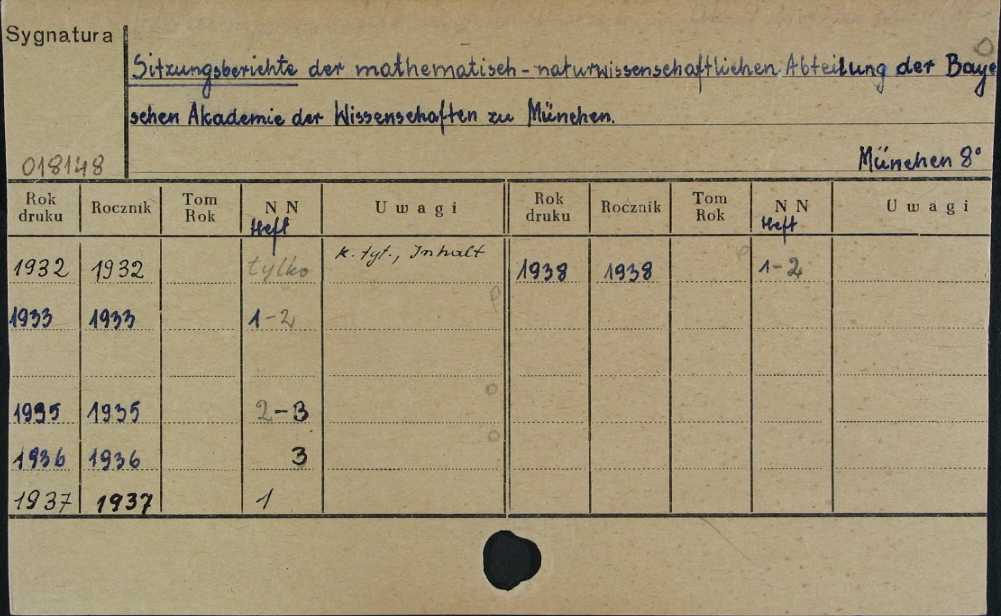 Sygnatura
Sitzungsberichte der mathematisch-naturwissenschaftlichen Abteilung der Baye
schen Akademie der Wissenschaften zu München.
018148
München 8°
Rok druku Rocznik Tom Rok NN Heft Uwagi Rok druku Rocznik Tom Rok NN Heft Uwagi
1932 1932 tylko k. tyt., Inhalt 1938 1938 1-2
1933 1933 1-2
1935 1935 2-3
1936 1936 3
1937 1937 1